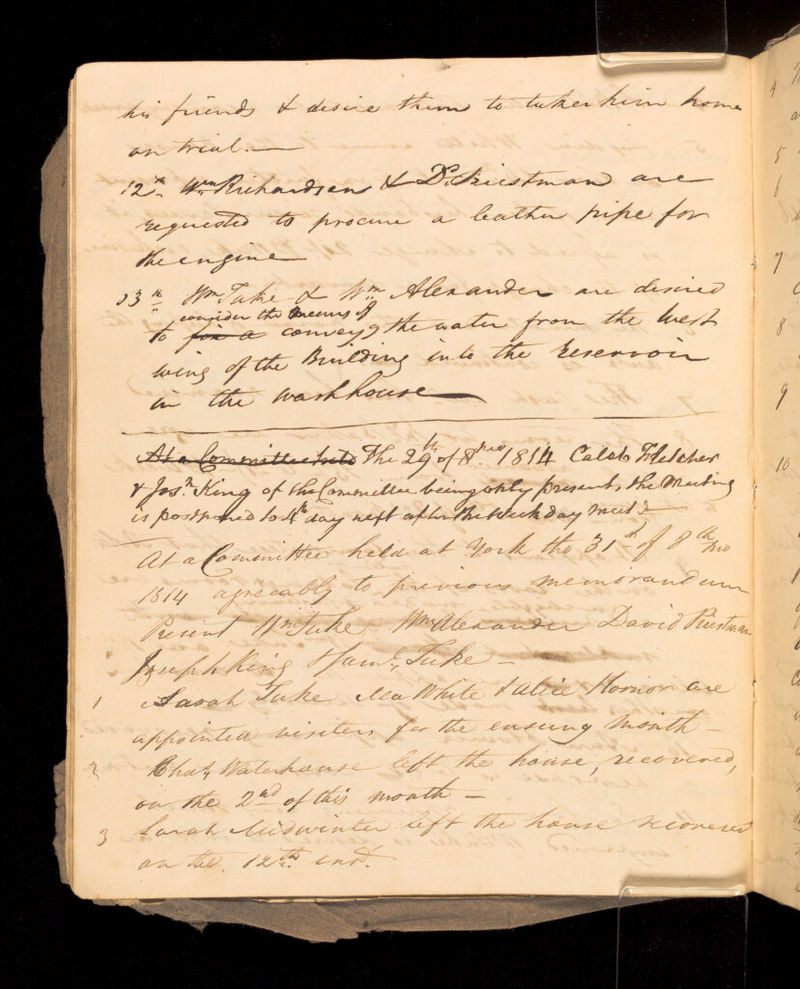 his friends & desire them to take him home
on trial.—
12th Wm Richardson & Dd. Priestman are
requested to procure a leather pipe for
the engine—
13th Wm Tuke & Wm Alexander are desired
consider the means of
to fix a convey.g the water from the West
wing of the Building into the reservoir
in the washhouse—
At a Committee held The 29th of 8th mo 1814 Caleb Fletcher
& Josh. King of the Committee being only present, the Meeting
is postponed to 4th day next after the Week day Meetg—
At a Committee held at York the 31st of 8th mo
1814 agreeably to previous memorandum
Present Wm Tuke Wm Alexander David Priestman
Joseph King & Saml. Tuke—
1 Sarah Tuke White & Alice Hornor are
appointed visiters for the ensuing month—
2 Waterhouse left the house, recovered,
on the 2nd of this month—
3 Sarah Midwinter left the house recovered
on the 12th inst.
4
5
6
7
8
9
10